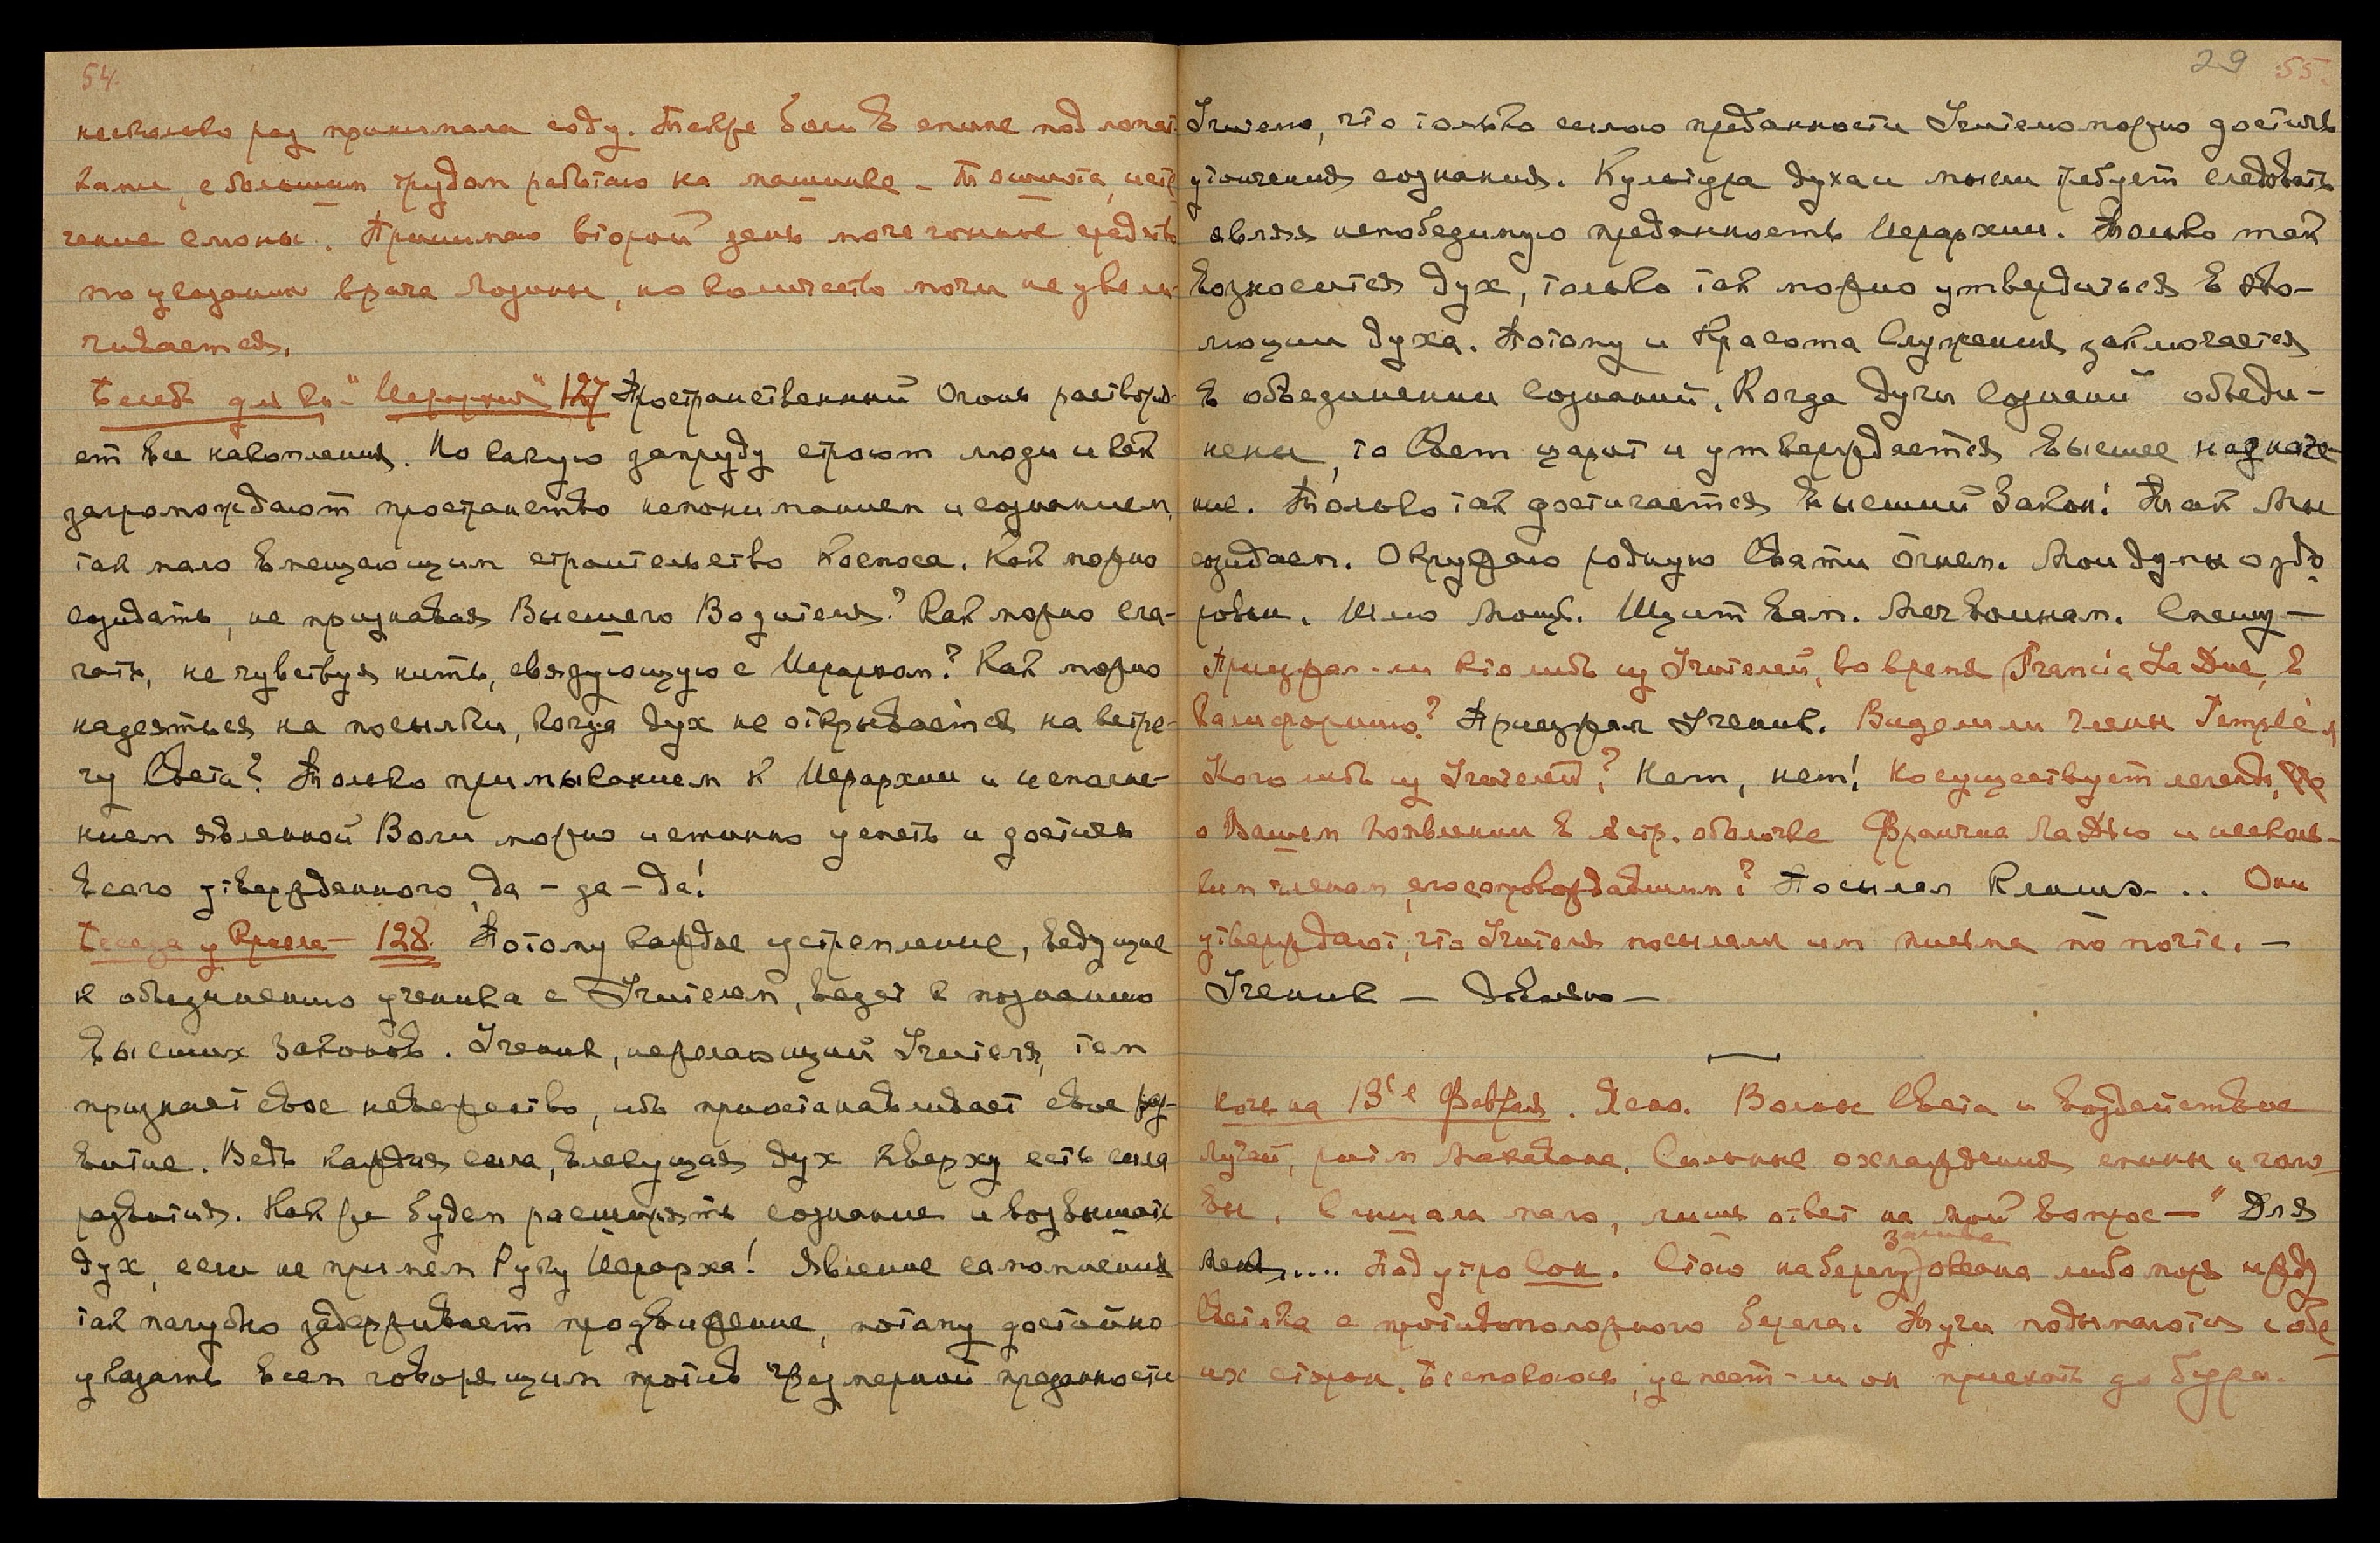 54.
несколько раз принимала соду. Также боли в спине под лопат
ками, с большим трудом работаю на машинке – Тошнота, исте
чение слюны. Принимаю второй день мочегонное средств
по указанию врача Лозины, но количество мочи не увели-
чивается.
Бесед для кн. "Иерархия" 127 Пространственный Огонь растворя-
ет все накопления. Но какую запруду строют люди и как
загромождают пространство непониманием и сознанием,
так мало вмещающим строительство Космоса. Как можно
созидать, не признавая Высшего Водителя? Как можно сла-
гать, не чувствуя нить, связующую с Иерархом? Как можно
надеяться на посылки, когда дух не открывается на встре-
чу Света? Только примыканием к Иерархии и исполне-
нием явленной Воли можно истинно успеть и достичь
всего утвержденного, да – да – да!
Беседа у Кресла – 128. Потому каждое устремление, ведущее
к объединению ученика с Учителем, ведет к познанию
высших Законов. Ученик, не желающий Учителя, тем
признает свое невежество, ибо приостанавливает свое раз-
витие. Ведь каждая сила, влекущая дух кверху есть сила
развития. Как же будем расширять сознание и возвышать
дух, если не примем Руку Иерарха! Явление самомнения
так пагубно задерживает продвижение, потому достойно
указать всем говорящим против чрезмерной преданности
29 55.
Учителю, что только силою преданности Учителю можно достичь
утончения сознания. Культура духа и мысли требует следовать
являя непобедимую преданность Иерархии. Только так
возносится дух, только так можно утвердиться в эво-
люции духа. Потому и Красота Служения заключается
в объединении сознаний. Когда Лучи сознаний объеди-
нены, то Свет царит и утверждается высшее назначе-
ние. Только так достигается высший Закон! Так Мы
созидаем. Окружаю родную Свати Огнем. Мои думы о здо-
ровьи. Шлю Мощь. Щит вам. Меч воинам. Спешу –
Приезжал-ли кто либо из Учителей, во время Francia La Due, в
Калифорнию? Приезжал Ученик. Видели ли члены Temple'я
Кого либо из Учителей? Нет, нет! Но существует легенда,
о Вашем появлении в Астр. оболочке Франчиа Ла Дью и несколь-
ким членам, его сопровождавшим? Посылал Клише... Они
утверждают, что Учителя посылали им письма по почте. –
Ученик – Дьвалю –
Ночь на 13'е Февраля. Ясно. Волны Света и воздействие
Лучей, ритм Махавана. Сильные охлаждения спины и голо-
вы. Слышала мало, лишь ответ на мой вопрос – "Для
меня.... Под утро Сон. Стою на берегу залива океана либо моря и жду
Светика с противоположного берега. Тучи подымаются с обе-
их сторон. Беспокоюсь, успеет-ли он приехать до бури.